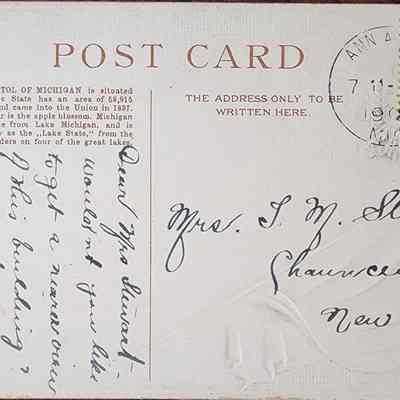 POST CARD
TOL OF MICHIGAN is situated
State has an area of 58,915
nd came into the Union in 1837.
r is the apple blossom. Michigan
e from Lake Michigan, and is
as the „Lake State," from the
ders on four of the great lakes.
THE ADDRESS ONLY TO BE
WRITTEN HERE.
ANN A
7 11-
19
Dear Mrs Stewart
wouldn't you like
to get a near view
of this building?
Mrs. J. M. St
Chaunce
New